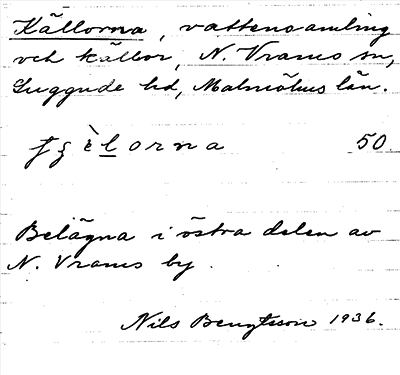 Källorna, vattensamling
och källor, N. Vrams sn,
Luggude hd, Malmöhus län.
50
Belägna i östra delen av
N. Vrams by.
Nils Bengtsson 1936.